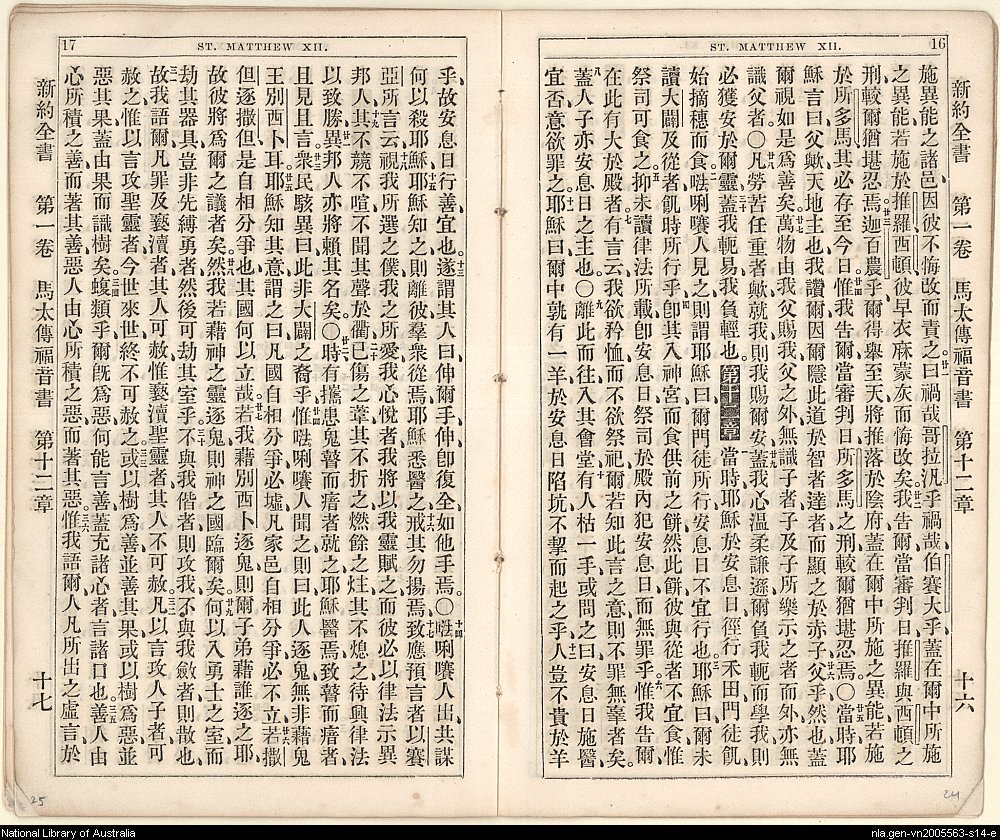 16
ST. MATTHEW XII.
新約全書 第一卷 馬太傳福音書 第十二章 十六
施異能之諸邑、因彼不悔改而責之。曰、禍哉哥拉汛乎、禍哉伯賽大乎、蓋在爾中所施
之異能、若施於推羅西頓、彼早衣麻蒙灰而悔改矣。我告爾、當審判日、推羅與西頓之
刑、較爾猶堪忍焉。迦百農乎、爾得舉至天、將推落於陰府、蓋在爾中所施之異能、若施
於所多馬、其必存至今日。惟我告爾、當審判日、所多馬之刑、較爾猶堪忍焉。〇當時耶
穌言曰、父歟、天地主也、我讚爾、因爾隱此道於智者達者、而顯之於赤子。父乎、然也、蓋
爾視如是爲善矣。萬物由我父賜我、父之外、無識子者、子及子所樂示之者而外、亦無
識父者。〇凡勞苦任重者歟、就我、則我賜爾安。蓋我心溫柔謙遜、爾負我軛而學我、則
必獲安於爾靈。蓋我軛易、我負輕也。第十二章 當時耶穌於安息日徑行禾田、門徒飢、
始摘穗而食。𠵽唎㘔人見之、則謂耶穌曰、爾門徒所行、安息日不宜行也。耶穌曰、爾未
讀大闢及從者飢時所行乎。卽其入神宮而食供前之餅、然此餅彼與從者不宜食、惟
祭司可食之。抑未讀律法所載、卽安息日祭司於殿內犯安息日而無罪乎。惟我告爾、
在此有大於殿者。有言云、我欲矜恤、而不欲祭祀、爾若知此言之意、則不罪無辜者矣。
蓋人子亦安息日之主也。〇離此而往、入其會堂。有人枯一手、或問之曰、安息日施醫、
宜否、意欲罪之。耶穌曰、爾中孰有一羊、於安息日陷坑、不挈而起之乎。人豈不貴於羊
17
ST. MATTHEW XII.
乎、故安息日行善宜也。遂謂其人曰、伸爾手、伸卽復全、如他手焉。〇𠵽唎㘔人出、共謀
何以殺耶穌。耶穌知之、則離彼、羣衆從焉、耶穌悉醫之。戒其勿揚焉。致應預言者以賽
亞所言云。視我所選之僕、我之所愛、我心悅者、我將以我靈賦之、而彼必以律法示異
邦人。其不競不喧、不聞其聲於衢。已傷之葦、其不折之、燃餘之炷、其不熄之、待興律法
以致勝。異邦人亦將賴其名矣。〇時有攜患鬼瞽而瘖者就之、耶穌醫焉、致瞽而瘖者、
且見且言。衆民駭異曰、此非大闢之裔乎。惟𠵽唎㘔人聞之則曰、此人逐鬼、無非藉鬼
王別西卜耳。耶穌知其意、謂之曰、凡國自相分爭必墟、凡家邑自相分爭必不立。若撒
但逐撒但、是自相分爭也、其國何以立哉。若我藉別西卜逐鬼、則爾子弟藉誰逐之耶、
故彼將爲爾之議者矣。然我若藉神之靈逐鬼、則神之國臨爾矣。何以入勇士之室而
劫其器具、豈非先縛勇者、然後可劫其室乎。不與我偕者則攻我、不與我斂者則散也。
故我語爾、凡罪及褻瀆者、其人可赦、惟褻瀆聖靈者、其人不可赦。凡以言攻人子者可
赦之、惟以言攻聖靈者、今世來世終不可赦之。或以樹爲善並善其果、或以樹爲惡並
惡其果、蓋由果而識樹矣。蝮類乎、爾旣爲惡、何能言善、蓋充諸心者、言諸口也。善人由
心所積之善而著其善、惡人由心所積之惡而著其惡。惟我語爾、人凡所出之虛言、於
新約全書 第一卷 馬太傳福音書 第十二章 十七
25
24
National Library of Australia
nla.gen-vn2005563-s14-e